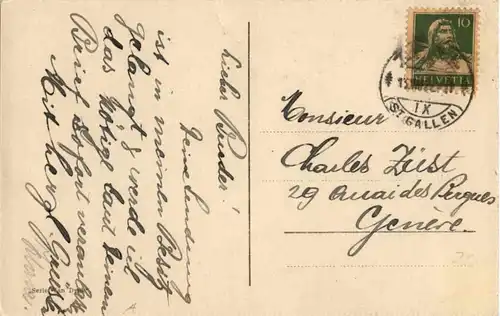 Lieber Bruder!
Deine Sendung
ist in meinem Besitz
gelangt & werde ich
das Nötige laut Deinem
Brief sofort veranlassen.
Mit herzl. Grüssen
10
HELVETIA
IX
(ST. GALLEN)
Monsieur
Charles Züst
29 Quai des Bergues
Genève.